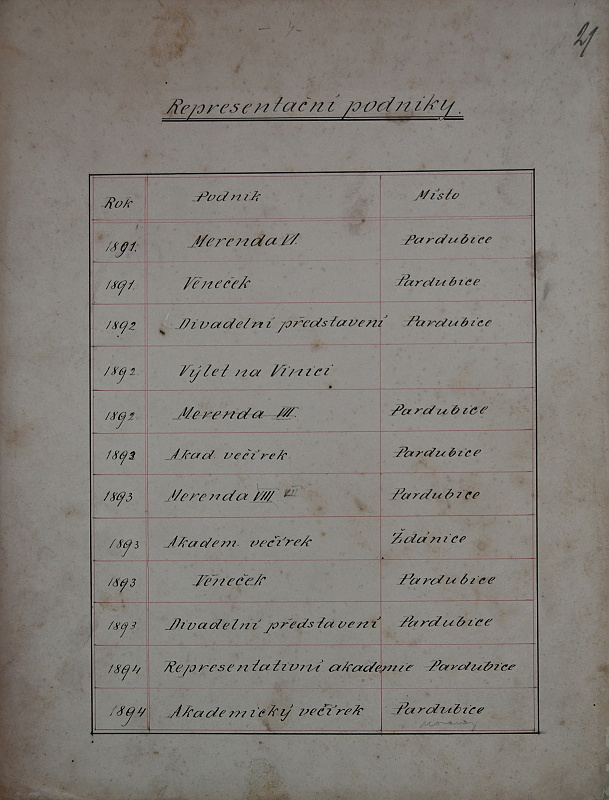 21
Representační podniky.
Rok Podnik Místo
1891. Merenda VI. Pardubice
1891 Věneček Pardubice
1892 Divadelní představení Pardubice
1892 Výlet na Vinici
1892 Merenda VII. Pardubice
1892 Akad večírek Pardubice
1893 Merenda VIII VII Pardubice
1893 Akadem. večírek Ždánice
1893 Věneček Pardubice
1893 Divadelní představení Pardubice
1894 Representativní akademie Pardubice
1894 Akademický večírek Pardubice